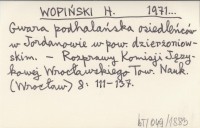 WOPIŃSKI H. 1971...
Gwara podhalańska osiedleńców
w Jordanowie w pow. dzierżoniow-
skim. – Rozprawy Komisji Języ-
kowej Wrocławskiego Tow. Nauk.
(Wrocław) 8: 111-137.